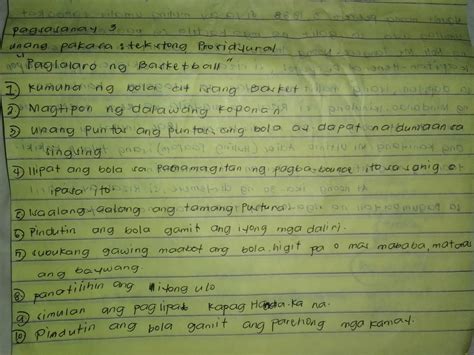 pagsasanay 3
unang pakasa stekstong Prosidyunal
"Paglalaro ng Basketball"
1) kumuha ng bola at isang basket
2) Magtipon ng dalawang koponan
3) unang puntar ang puntari, ang bola ay dapat na dumaan sa
singsing
4) Ilipat ang bola sa pamamagitan ng pagba-bounce ito sa sahig o
ipasa ito
5) isaalang-aalang ang tamang Pustura
6) Pindutin ang bola gamit ang iyong mga daliri.
7) subukang gawing maabot ang bola, higit pa o mas mababa,
ang baywang
8) panatilihin ang iyong ulo
9) simulan ang paglipat kapag Handa ka na.
10) Pindutin ang bola gamit ang parehong mga kamay.